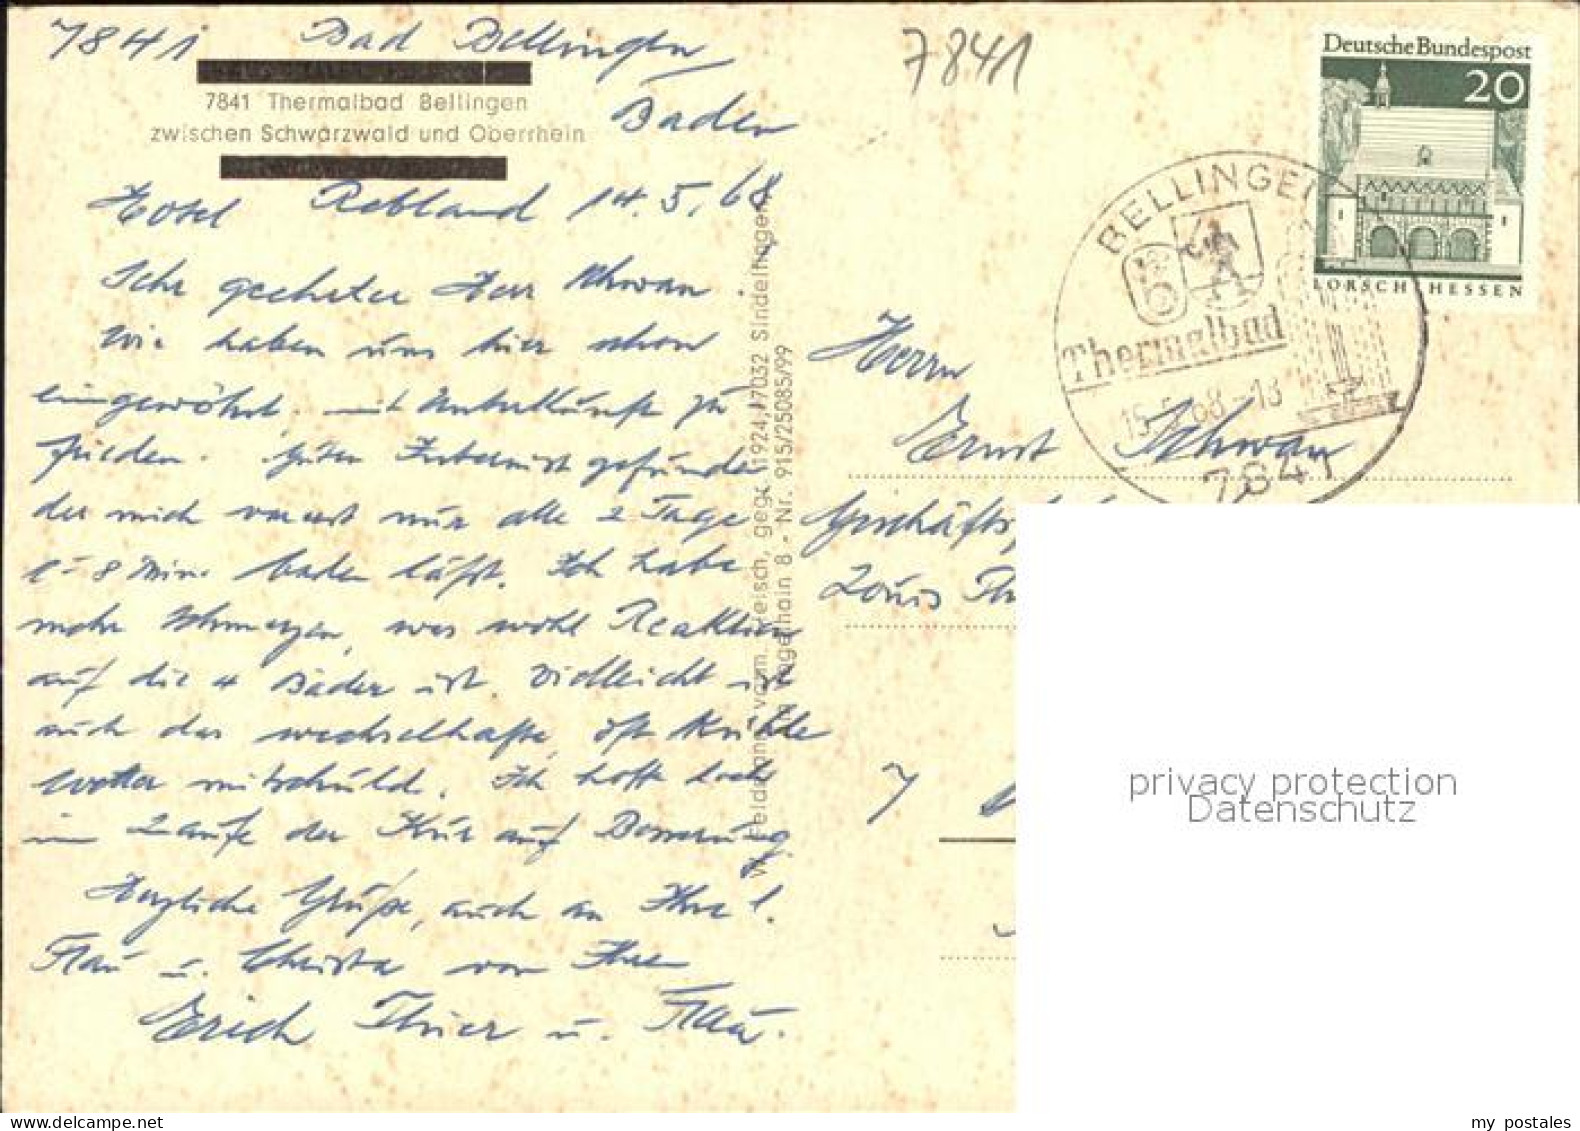 7841 Bad Bellingen/
7841 Thermalbad Bellingen
zwischen Schwarzwald und Oberrhein
Baden
Hotel Rebland 14.5.68
Sehr geehrter Herr Schwan.
Wir haben uns hier schon
eingewöhnt, mit Unterkunft zu
frieden. Guten Internist gefunden
der mich vorerst nur alle 2 Tage
8 Min. baden läßt. Ich habe
mehr Schmerzen, was wohl Reaktion
auf die 4 Bäder ist. Vielleicht ist
auch das wechselhafte, oft kühle
Wetter mitschuld. Ich hoffe doch
im Laufe der Kur auf Besserung.
Herzliche Grüße, auch an Ihre l.
Frau u. Christa von Ihrem
Erich Thier u. Frau.
1924, 7032 Sindelfingen
8 - Nr. 915/25085/99
7841
Deutsche Bundespost
20
LORSCH HESSEN
BELLINGEN
Thermalbad
15.5.68-18
7841
Herrn
Ernst Schwan
Geschäfts
Louis
7
privacy protection
Datenschutz
my postales